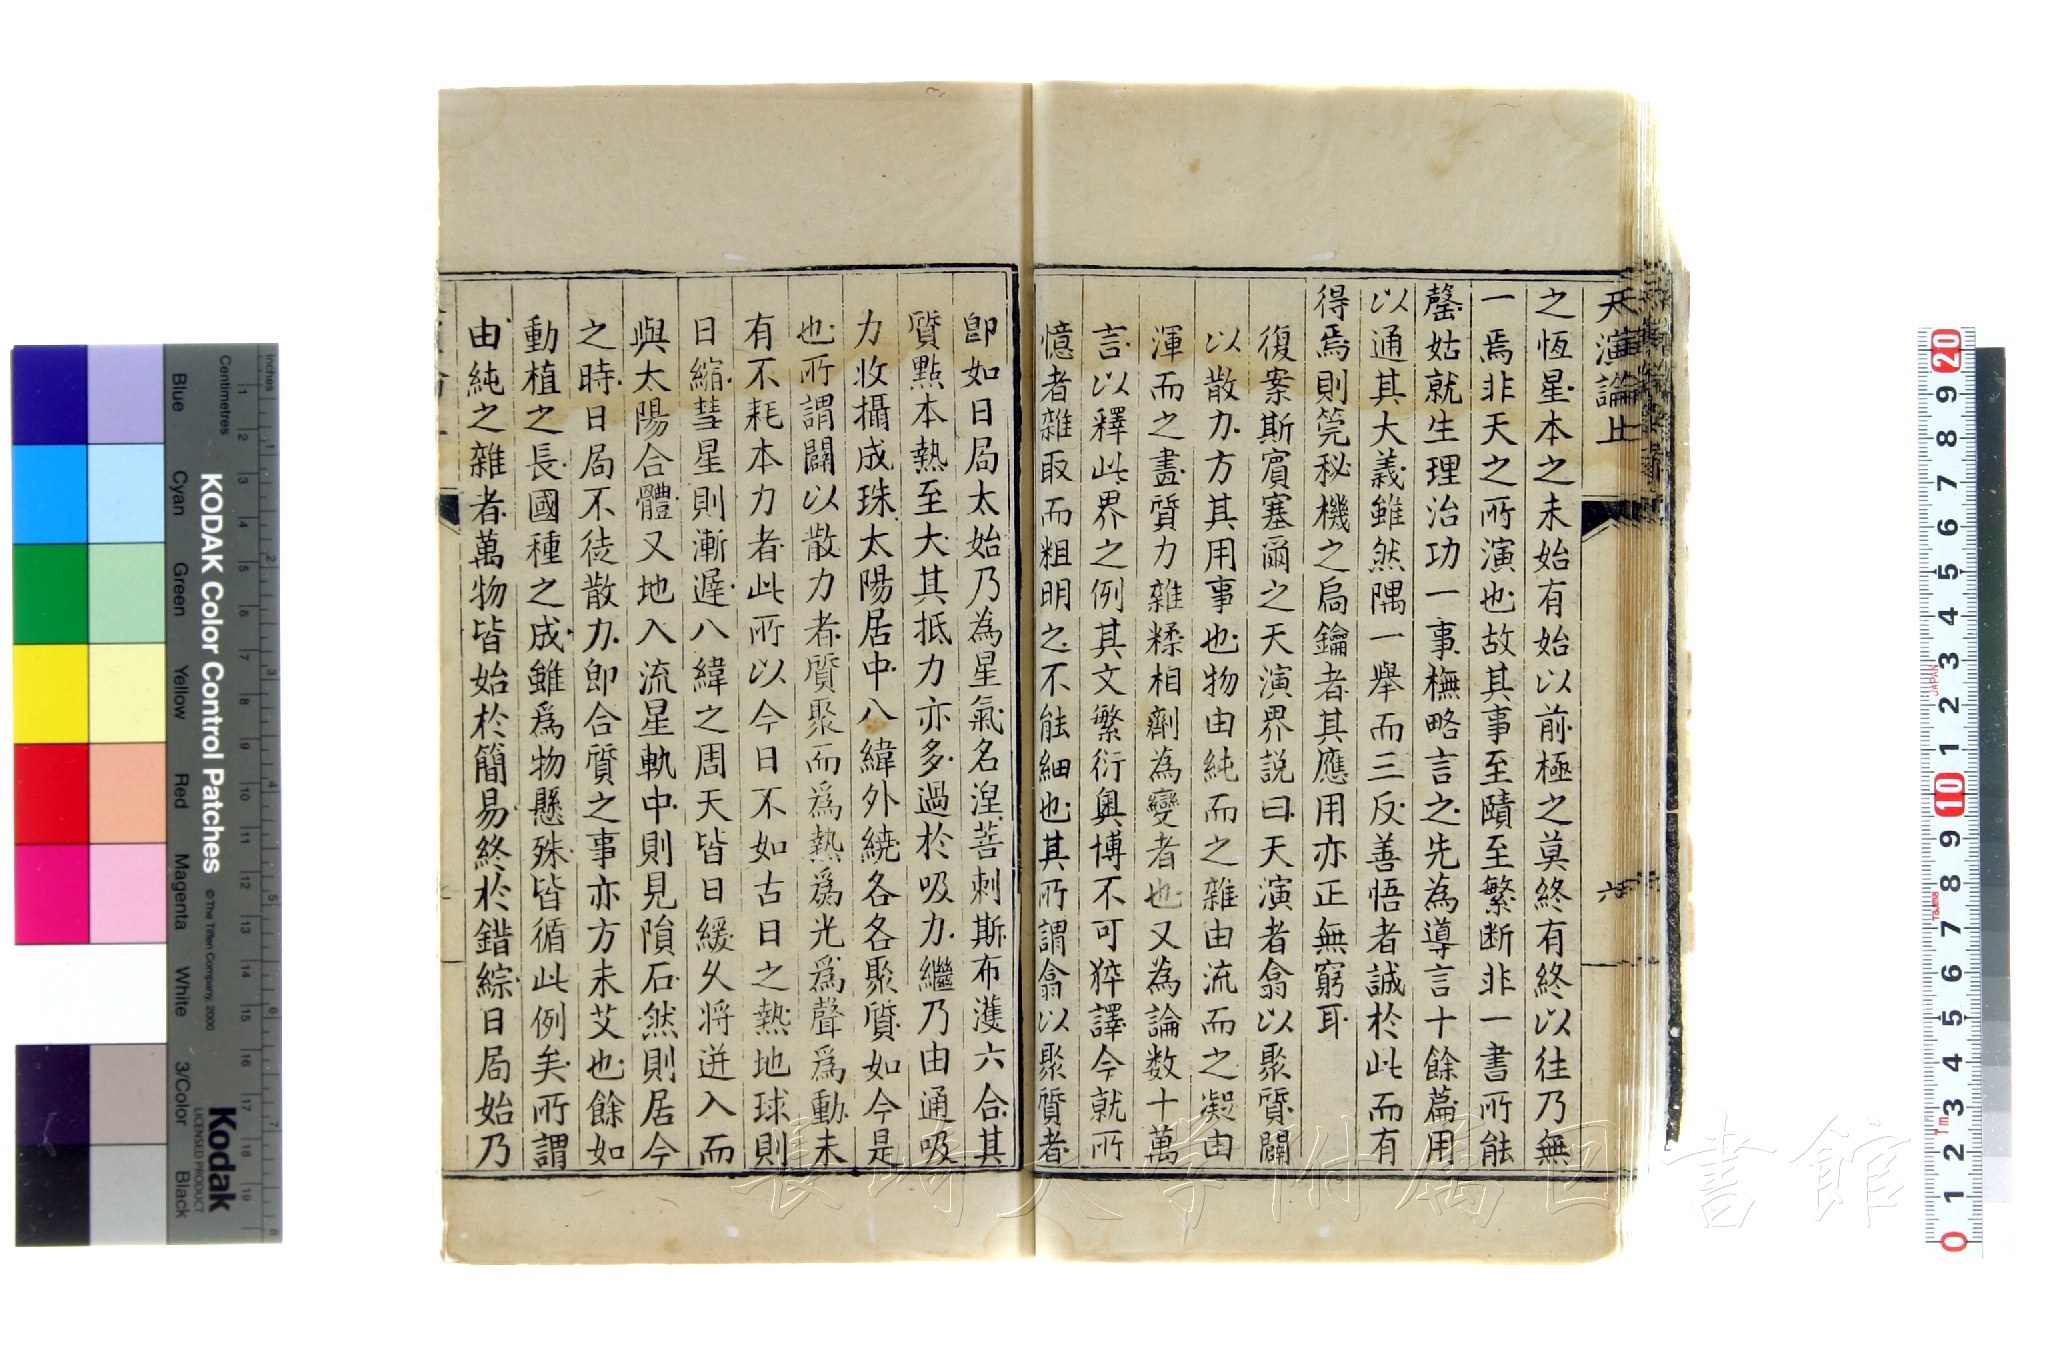 天演論上
六
之恆星本之未始有始以前極之莫終有終以往乃無
一焉非天之所演也故其事至賾至繁断非一書所能
罄姑就生理治功一事橅略言之先為導言十餘篇用
以通其大義雖然隅一舉而三反善悟者誠於此而有
得焉則筦秘機之扃鑰者其應用亦正無窮耳
復案斯賓塞爾之天演界説曰天演者翕以聚質闢
以散力方其用事也物由純而之雜由流而之凝由
渾而之畫質力雜糅相劑為變者也又為論数十萬
言以釋此界之例其文繁衍奧博不可猝譯今就所
憶者雜取而粗明之不能細也其所謂翕以聚質者
即如日局太始乃為星氣名湼菩剌斯布濩六合其
質點本熱至大其抵力亦多過於吸力繼乃由通吸
力收攝成珠太陽居中八緯外繞各各聚質如今是
也所謂闢以散力者質聚而為熱為光為聲為動未
有不耗本力者此所以今日不如古日之熱地球則
日縮彗星則漸遲八緯之周天皆日緩久将迸入而
與太陽合體又地入流星軌中則見隕石然則居今
之時日局不徒散力即合質之事亦方未艾也餘如
動植之長國種之成雖為物懸殊皆循此例矣所謂
由純之雜者萬物皆始於簡易終於錯綜日局始乃
長崎大学附属図書館
KODAK Color Control Patches
© The Tiffen Company, 2000
Kodak
LICENSED PRODUCT
Inches
Centimetres
Blue
Cyan
Green
Yellow
Red
Magenta
White
3/Color
Black
1 2 3 4 5 6 7 8 9 10 11 12 13 14 15 16 17 18 19
1 2 3 4 5 6 7 8
20 9 8 7 6 5 4 3 2 1 10 9 8 7 6 5 4 3 2 1 0
JAPAN
Tajima